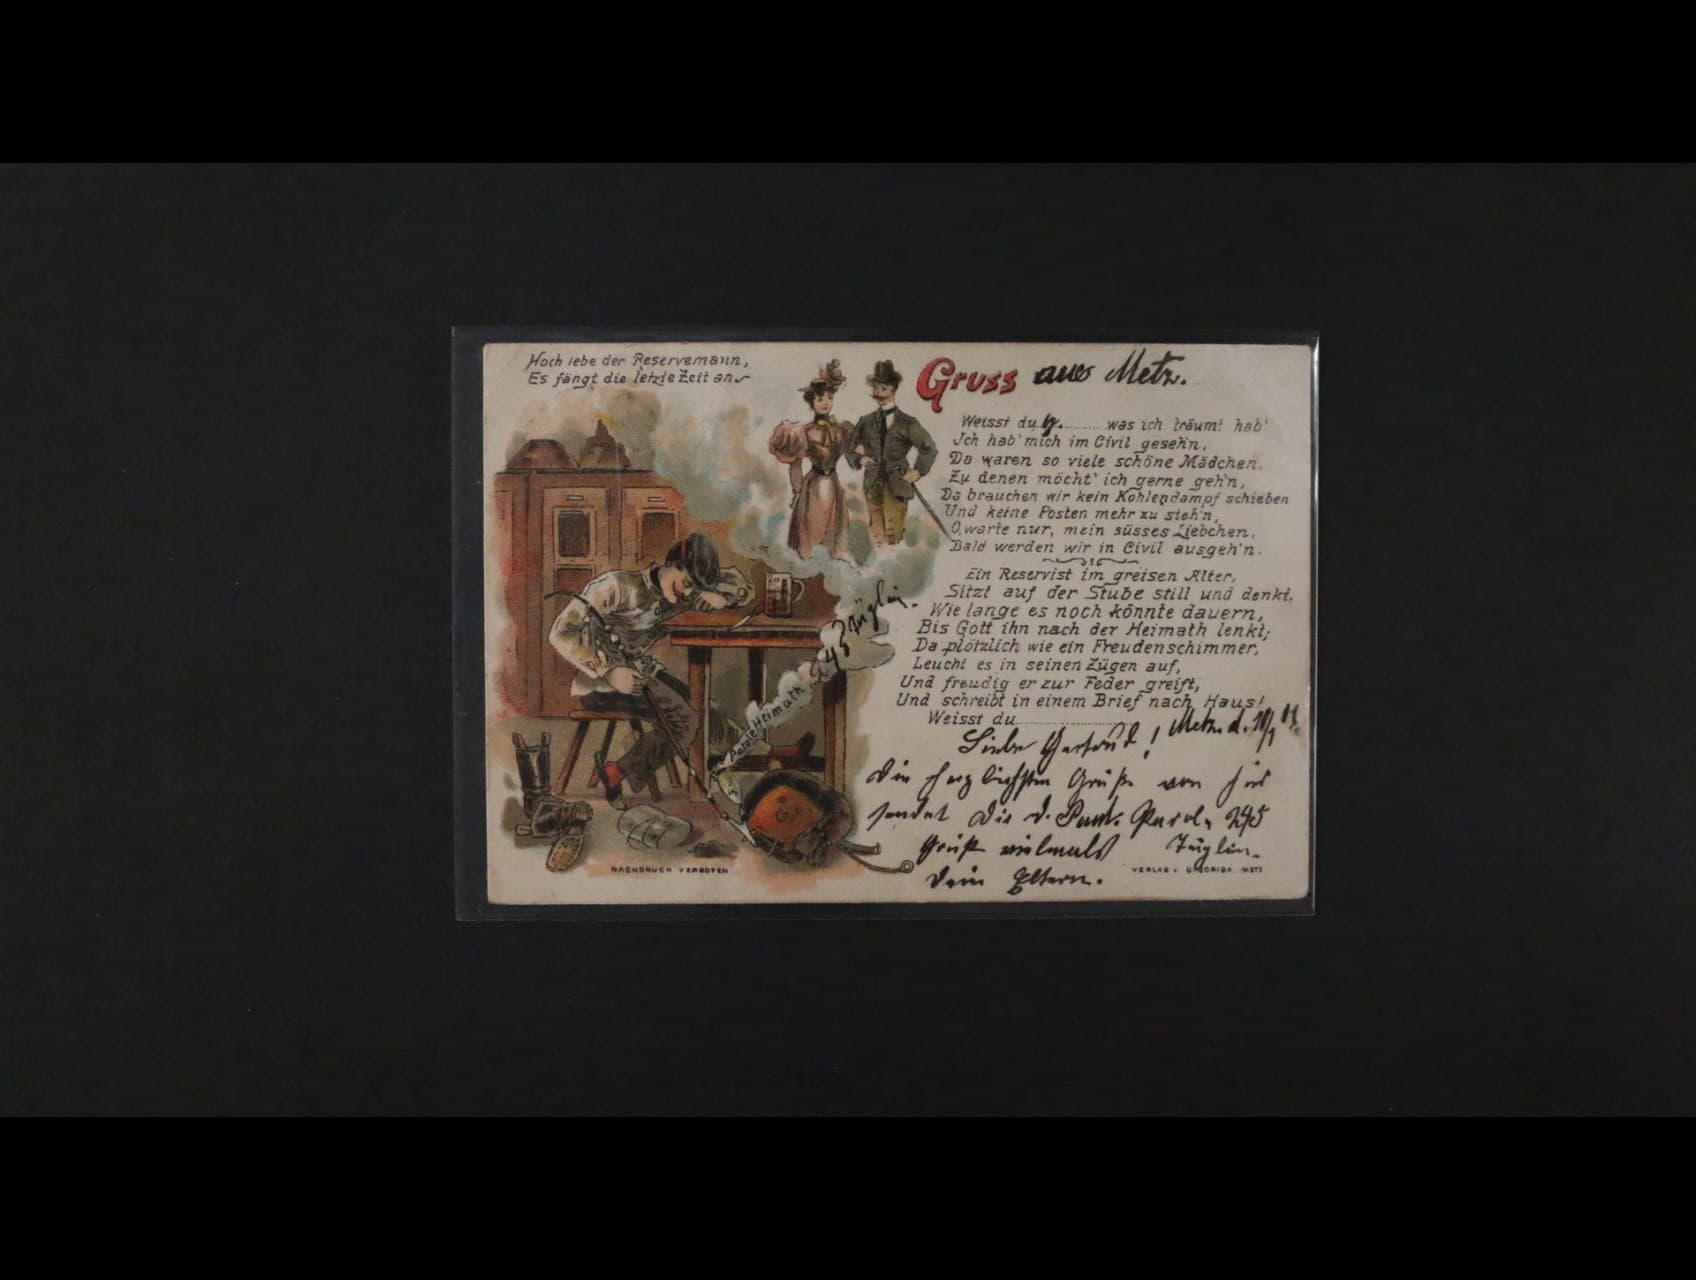 Hoch lebe der Reservemann,
Es fängt die letzte Zeit an
Gruss aus Metz.
Weisst du G. was ich träumt hab'
Ich hab' mich im Civil geseh'n,
Da waren so viele schöne Mädchen.
Zu denen möcht' ich gerne geh'n,
Da brauchen wir kein Kohlendampf schieben
Und keine Posten mehr zu steh'n,
O, warte nur, mein süsses Liebchen,
Bald werden wir in Civil ausgeh'n.
Ein Reservist im greisen Alter,
Sitzt auf der Stube still und denkt,
Wie lange es noch könnte dauern,
Bis Gott ihn nach der Heimath lenkt;
Da plötzlich wie ein Freudenschimmer,
Leucht es in seinen Zügen auf,
Und freudig er zur Feder greift,
Und schreibt in einem Brief nach Haus!
Weisst du
Parole Heimath 243
Metz d.
Liebe Gertrud!
Die herzlichsten Grüße von hier
sendet Dir d. Parole 245
Gruß vielmals
Dein Eltern.
NACHDRUCK VERBOTEN
VERLAG v. METZ